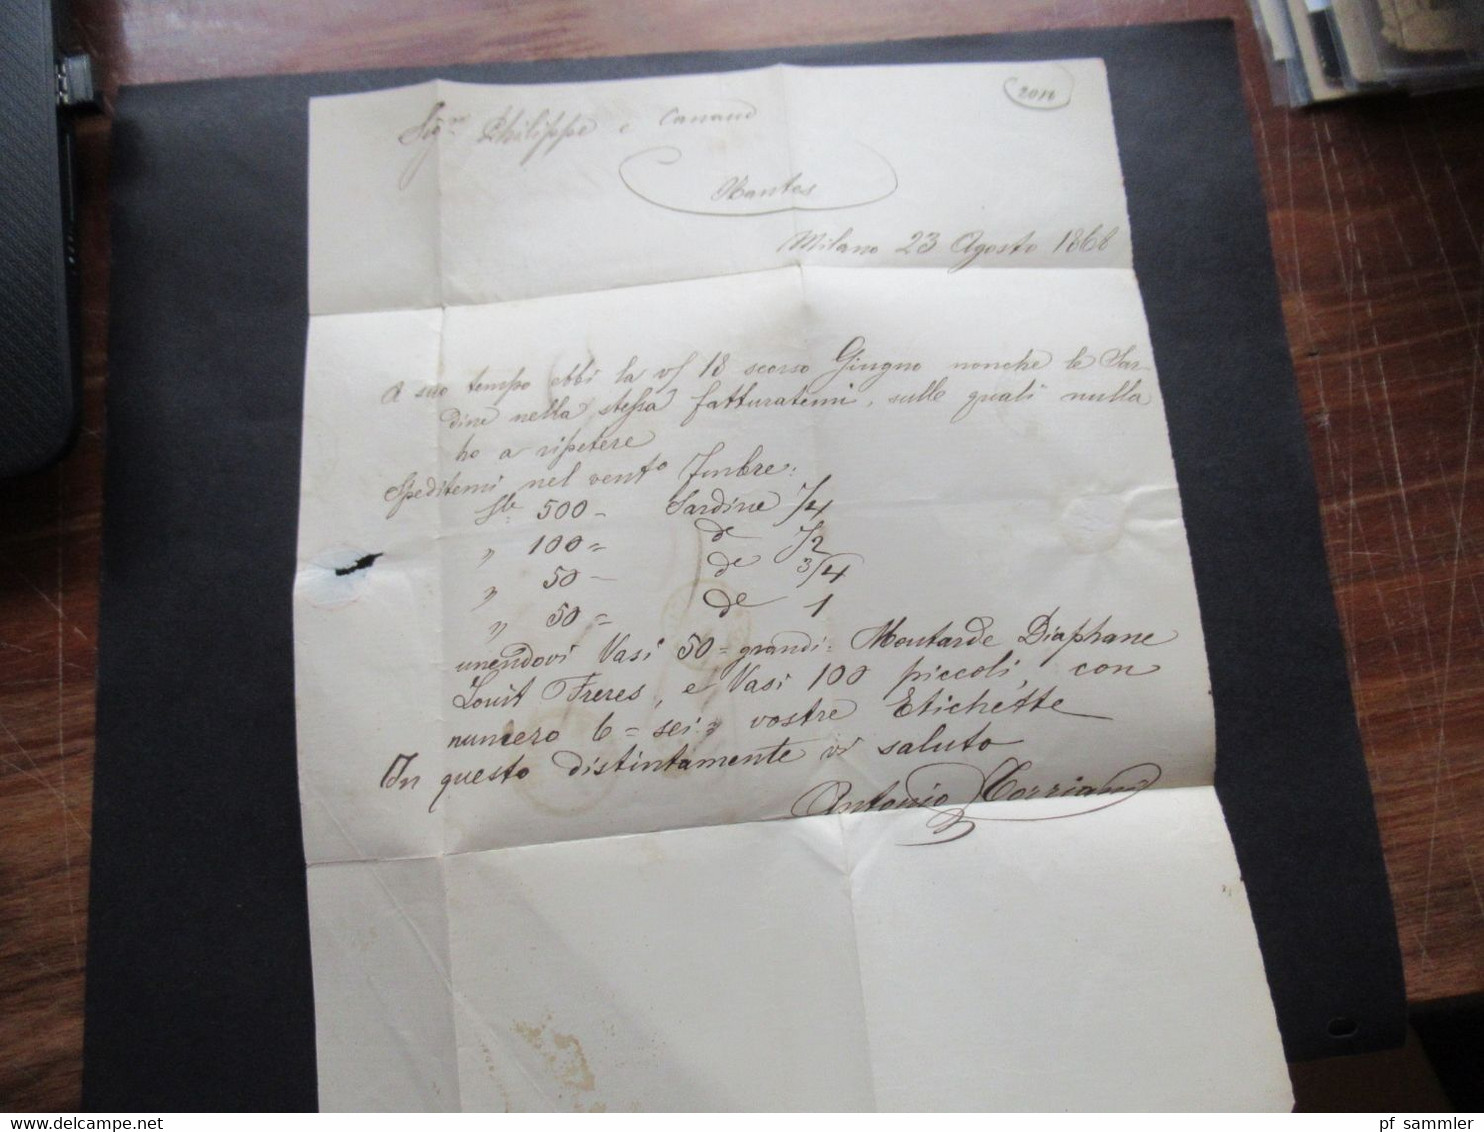 2011
Sigri Philippe e Canaud
Nantes
Milano 23 Agosto 1868
A suo tempo ebbi la vs/ 18 scorso Giugno nonchè le Sar-
dine nella stessa fatturatemi, sulle quali nulla
ho a ripetere
Speditemi nel vento 7mbre:
Sle 500 - Sardine 1/4
" 100 = de 1/2
" 50 - de 3/4
" 50 = de 1
unendovi Vasi 50 = grandi = Moutarde Diaphane
Louit Freres, e Vasi 100 piccoli, con
numero 6 = sei = vostre Etichette
In questo distintamente vi saluto
Antonio
pf sammler